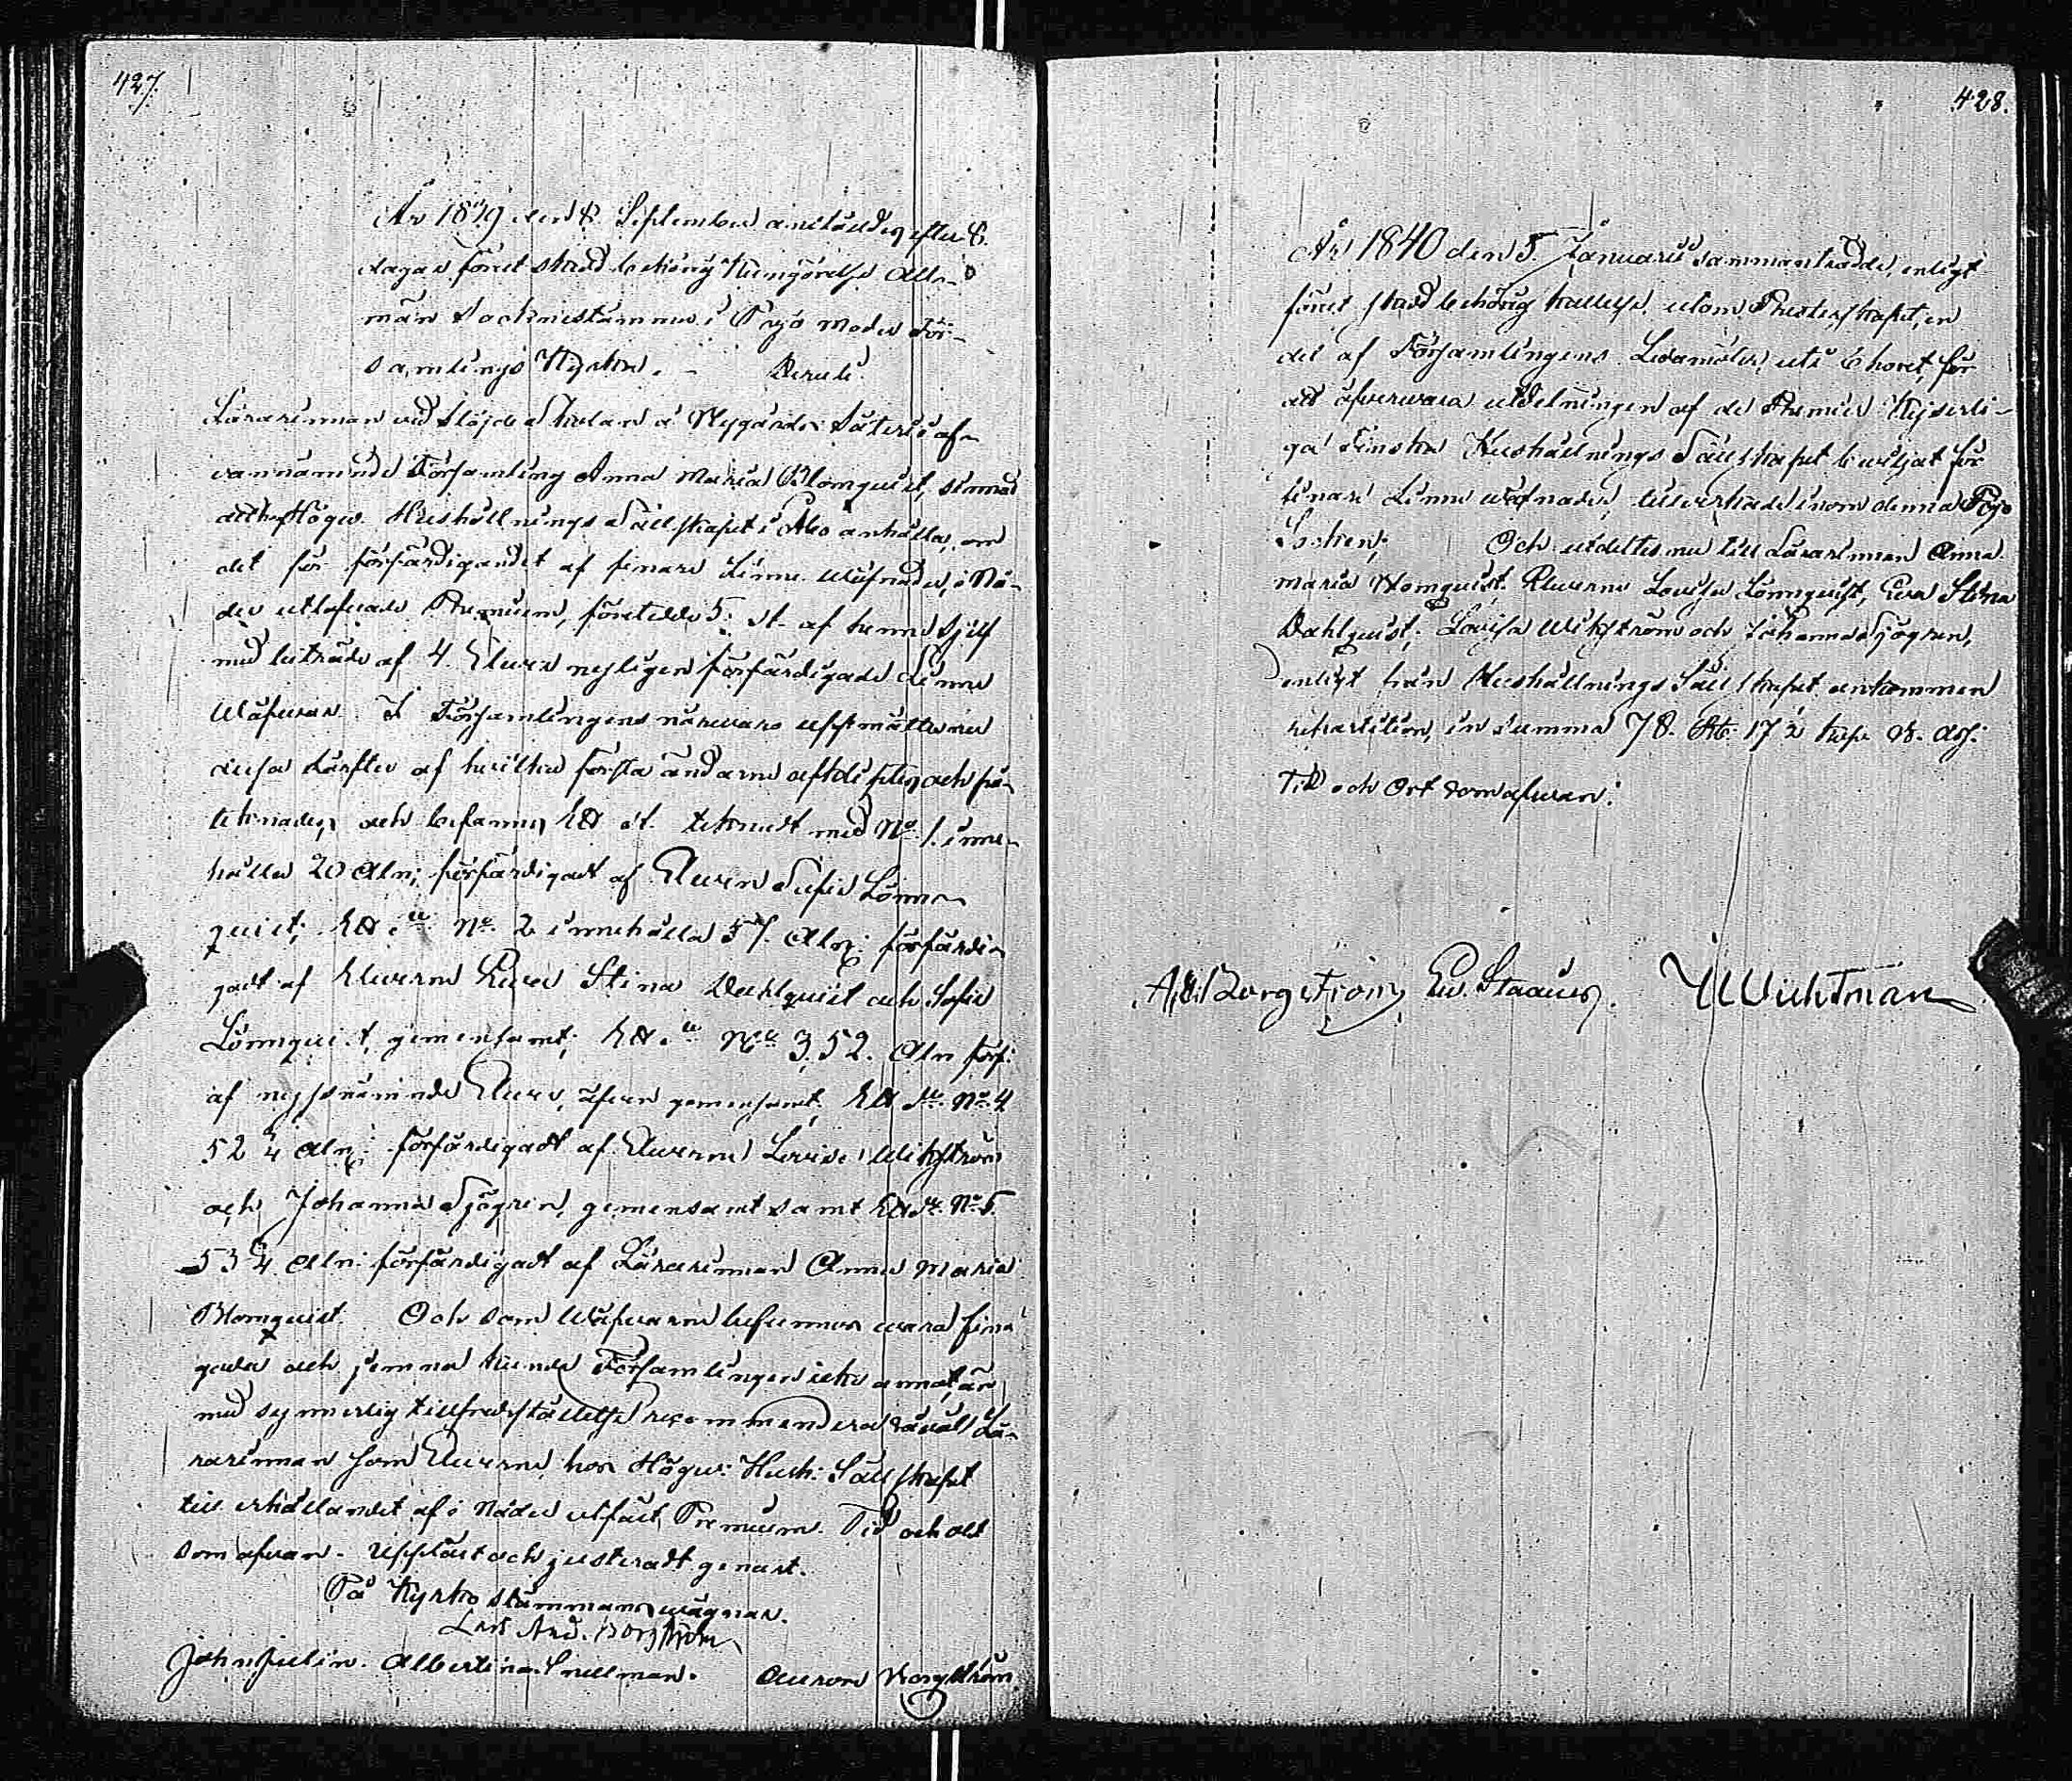 427.
År 1839 den 8 September anställdes efter 8
dagar förut skedd behörig Kungörelse All-
män Socknestämma i Pojo Moder För-
samlings Kyrka. - Dervid
Lärarinnan vid Slöjde Skolan å Nygårds Säteri i of-
vannämnde Församling Anna Maria Blomquist, sinnad
att hos Högw. Hushållnings Sällskapet i Åbo anhålla, om
det för förfärdigandet af finare Linne Wäfnader, i Nå-
der utlofvade Premium, företedde 5 st. af henne sjelf
med biträde af 4 Elever nyligen förfärdigade Linne
Wäfvar. I Församlingens närvaro uppmättes nu
dessa Lärfter af hvilka första ändarne och
tecknades, och befanns Ett st. tecknadt med No 1. inne-
hålla 20 Aln; förfärdigadt af Eleven Sofia Lönn-
quist; Ett d:o No. 2 innehålla 57. Aln; förfärdi-
gadt af Eleverne Eva Stina Dahlquist och Sofia
Lönnquist, gemensamt; Ett d:o No 3. 52. Aln förf:
af nyssnämnde Elever, äfven gemensamt; Ett d:o No. 4
52 ¾ Aln; förfärdigadt af Eleverne Lovisa Wikström
och Johanna Sjögren, gemensamt samt Ett d:o No 5.
53 ¾ Aln: förfärdigadt af Lärarinnan Anna Maria
Blomquist. Och som Wäfvarne befunnos vara fina
goda och jemna kunde Församlingen icke annat, än
med synnerlig tillfredsställelse recommendera såväl Lä-
rarinnan som Eleverne, hos Högw: Hush: Sällskapet
till erhållandet af i Nåder utfäst Premium. Tid och ort
som ofvan. Uppläst och justeradt genast.
På Kyrko stämmans wägnar.
Lars And. Borgström
John Julin. Albertina Snellman. Auron Borgström.
428.
År 1840 den 5. Januarii sammanträdde, enligt
förut skedd behörig kallelse, utom Presterskapet, en
del af Församlingens Ledamöter, uti Choret, för
att öfvervara utdelningen af de Premier Kejserli-
ga Finska Hushållnings Sällskapet beviljat för
finare Linne wäfnader, tillverkade inom denna Pojo
Socken; Och utdeltes nu till Lärarinnan Anna
Maria Blomquist. Eleverne Lovisa Lönnquist, Eva Stina
Dahlquist, Lovisa Wikström och Johanna Sjögren,
enligt från Hushållnings Sällskapet ankommen
repartition, in summa 78. Rb. 17 ½ kop. B. Ass:
Tid och Ort som ofvan:
And. Borgström, Ew. Staaus. Wichtman